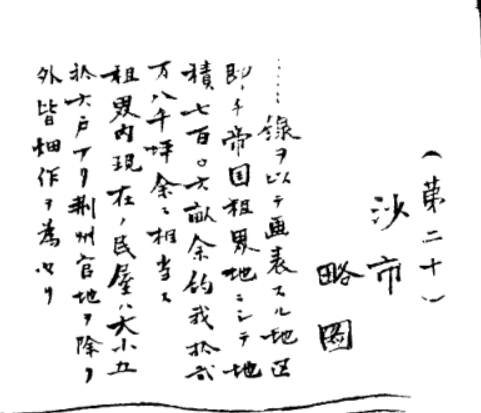 (第二十)
沙市
略図
……線ヲ以テ画表スル地区
即チ帝国租界地ニシテ地
積七百〇六畝余約我拾弐
万八千坪余ニ相当ス
租界内現在ノ民屋ハ大小五
拾六戸アリ荊州官地ヲ除ク
外皆畑作ヲ為セリ